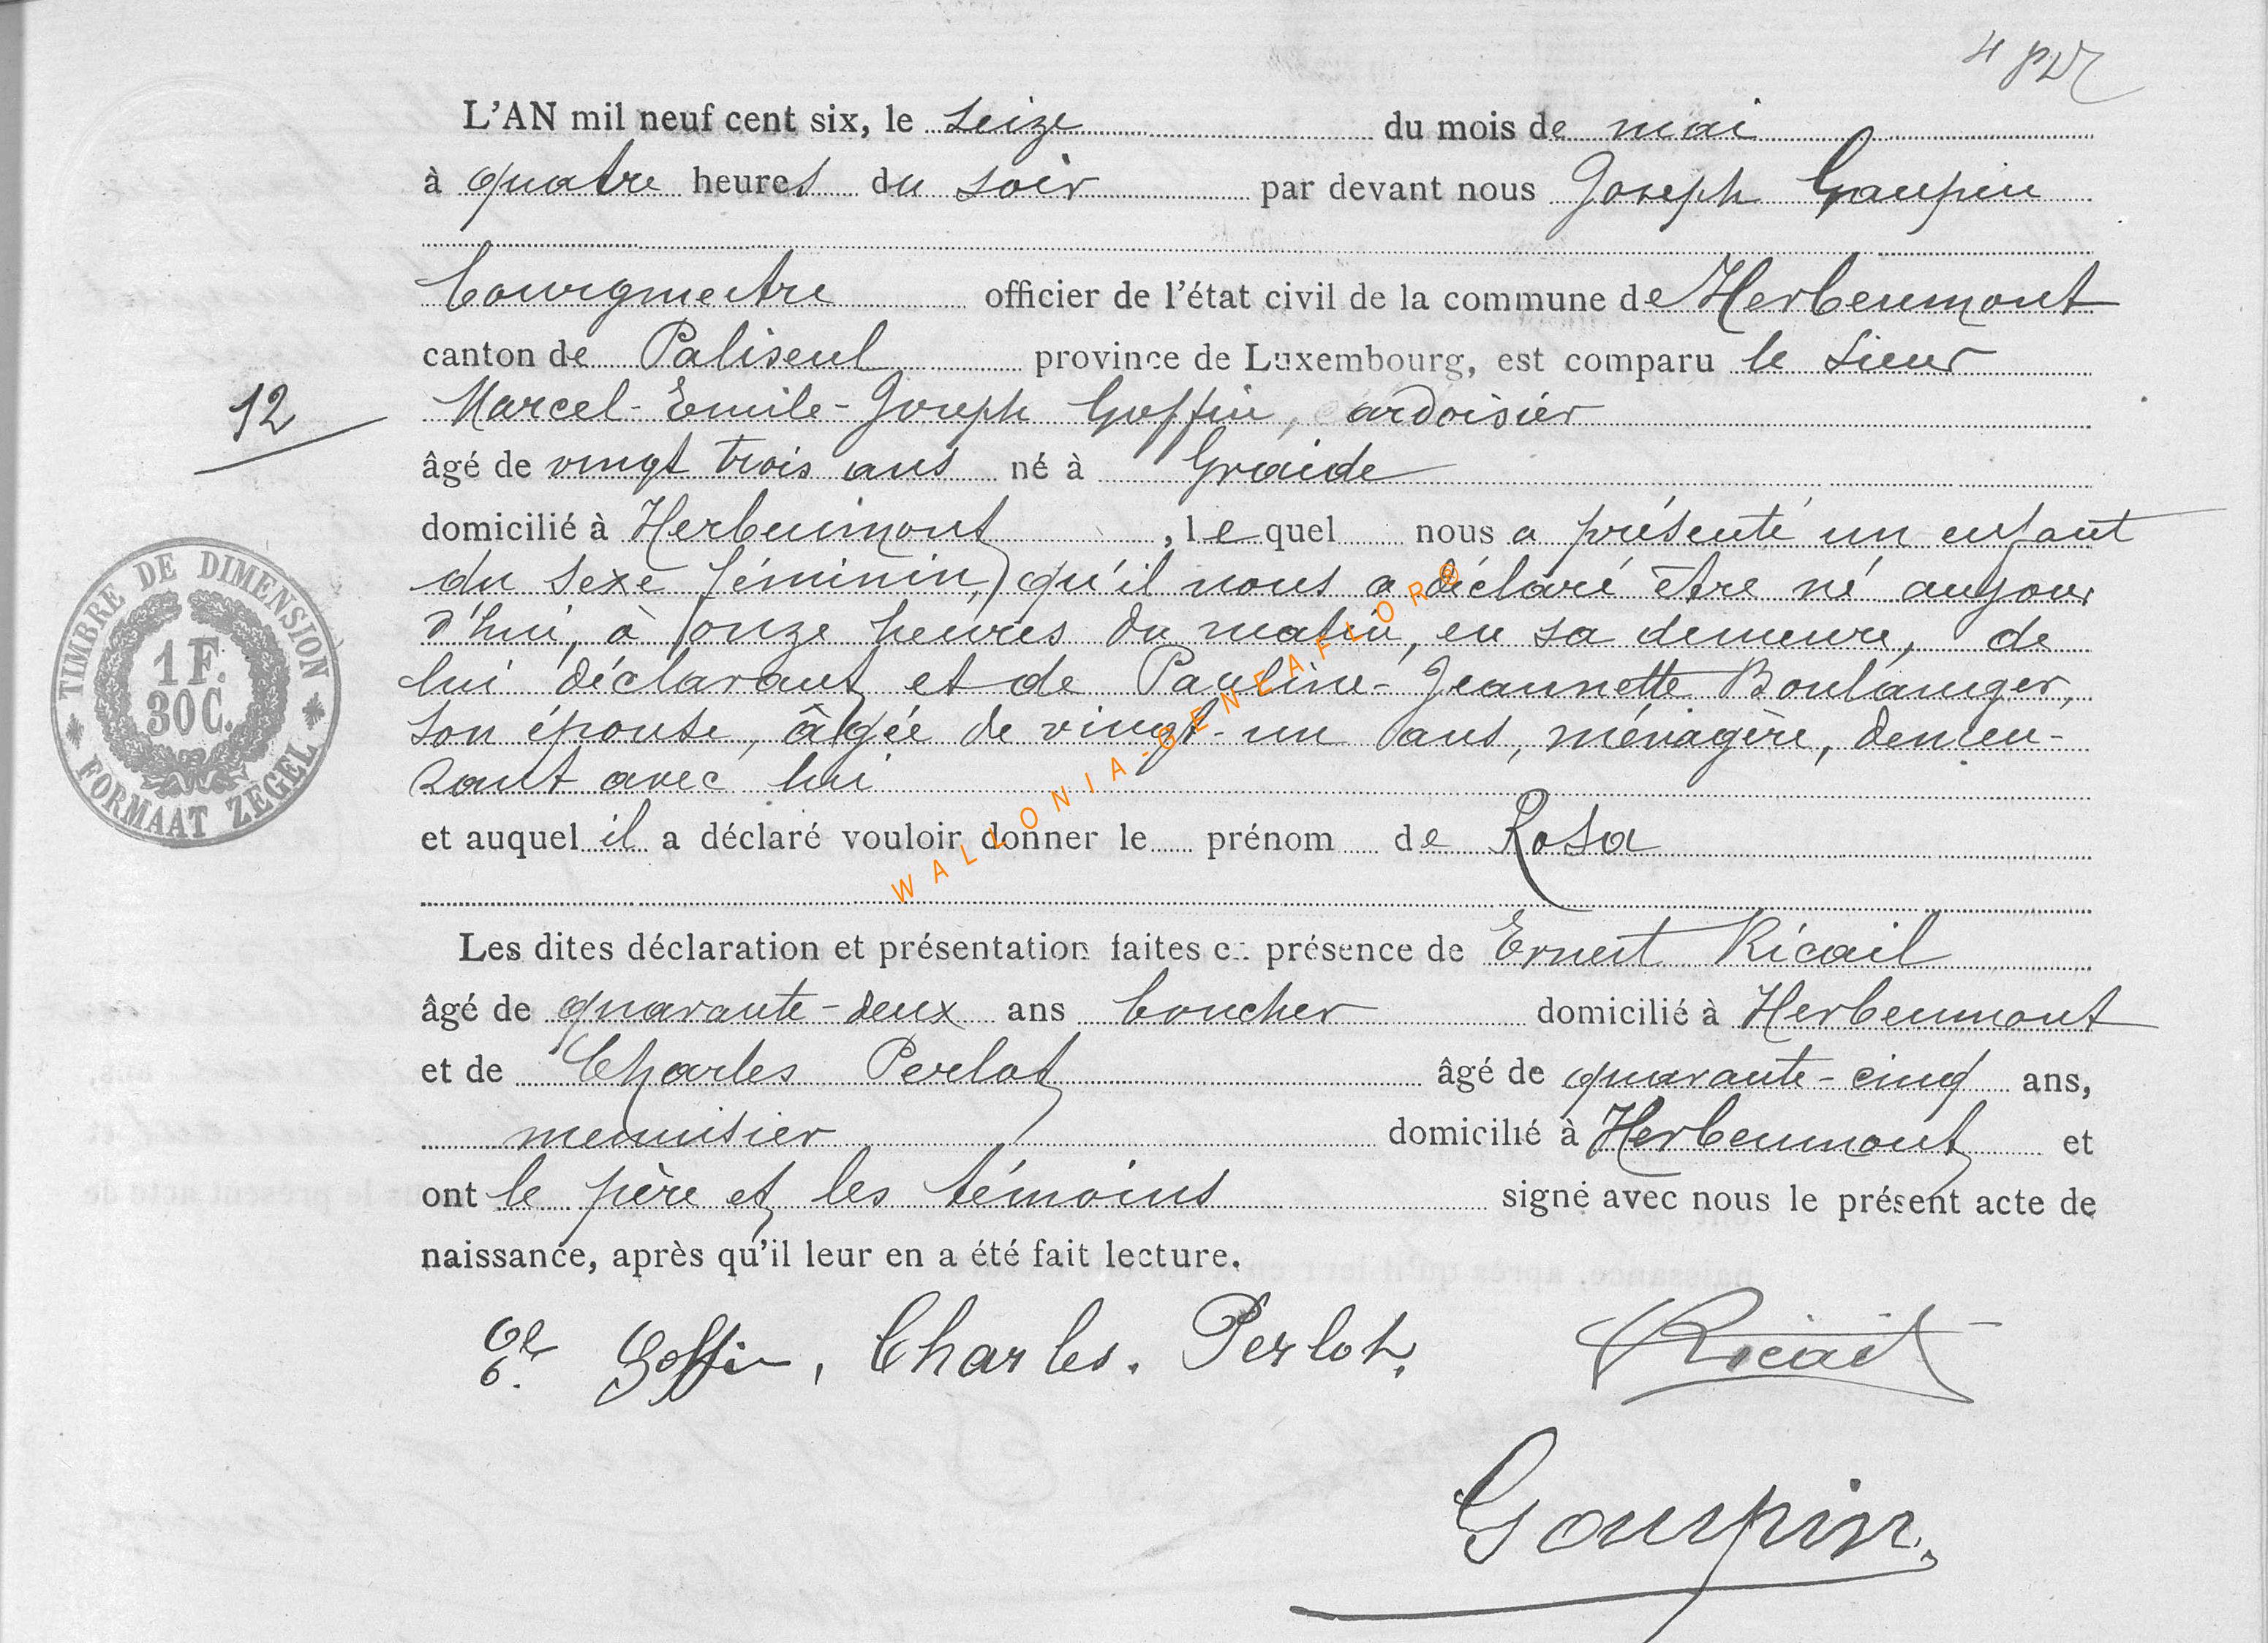 L'AN mil neuf cent six, le seize du mois de mai
à quatre heures du soir par devant nous Joseph Gaupin
bourgmestre officier de l'état civil de la commune de Herbeumont
canton de Paliseul province de Luxembourg, est comparu le sieur
12
Marcel-Emile-Joseph Goffin, ardoisier
âgé de vingt trois ans né à Graide
domicilié à Herbeumont, lequel nous a présenté un enfant
du sexe féminin, qu'il nous a déclaré être né aujour
d'hui, à onze heures du matin, en sa demeure, de
lui déclarant et de Pauline-Jeannette Boulanger,
son épouse, âgée de vingt-un ans, ménagère, demeu-
rant avec lui
TIMBRE DE DIMENSION
1 F.
30 C.
FORMAAT ZEGEL
et auquel il a déclaré vouloir donner le prénom de Rosa
WALLONIA-GENEAFLOR®
Les dites déclaration et présentation faites en présence de Ernest Ricail
âgé de quarante-deux ans boucher domicilié à Herbeumont
et de Charles Perlot âgé de quarante-cinq ans,
menuisier domicilié à Herbeumont et
ont le père et les témoins signé avec nous le présent acte de
naissance, après qu'il leur en a été fait lecture.
Goffin, Charles. Perlot. Ricail
Gaupin.